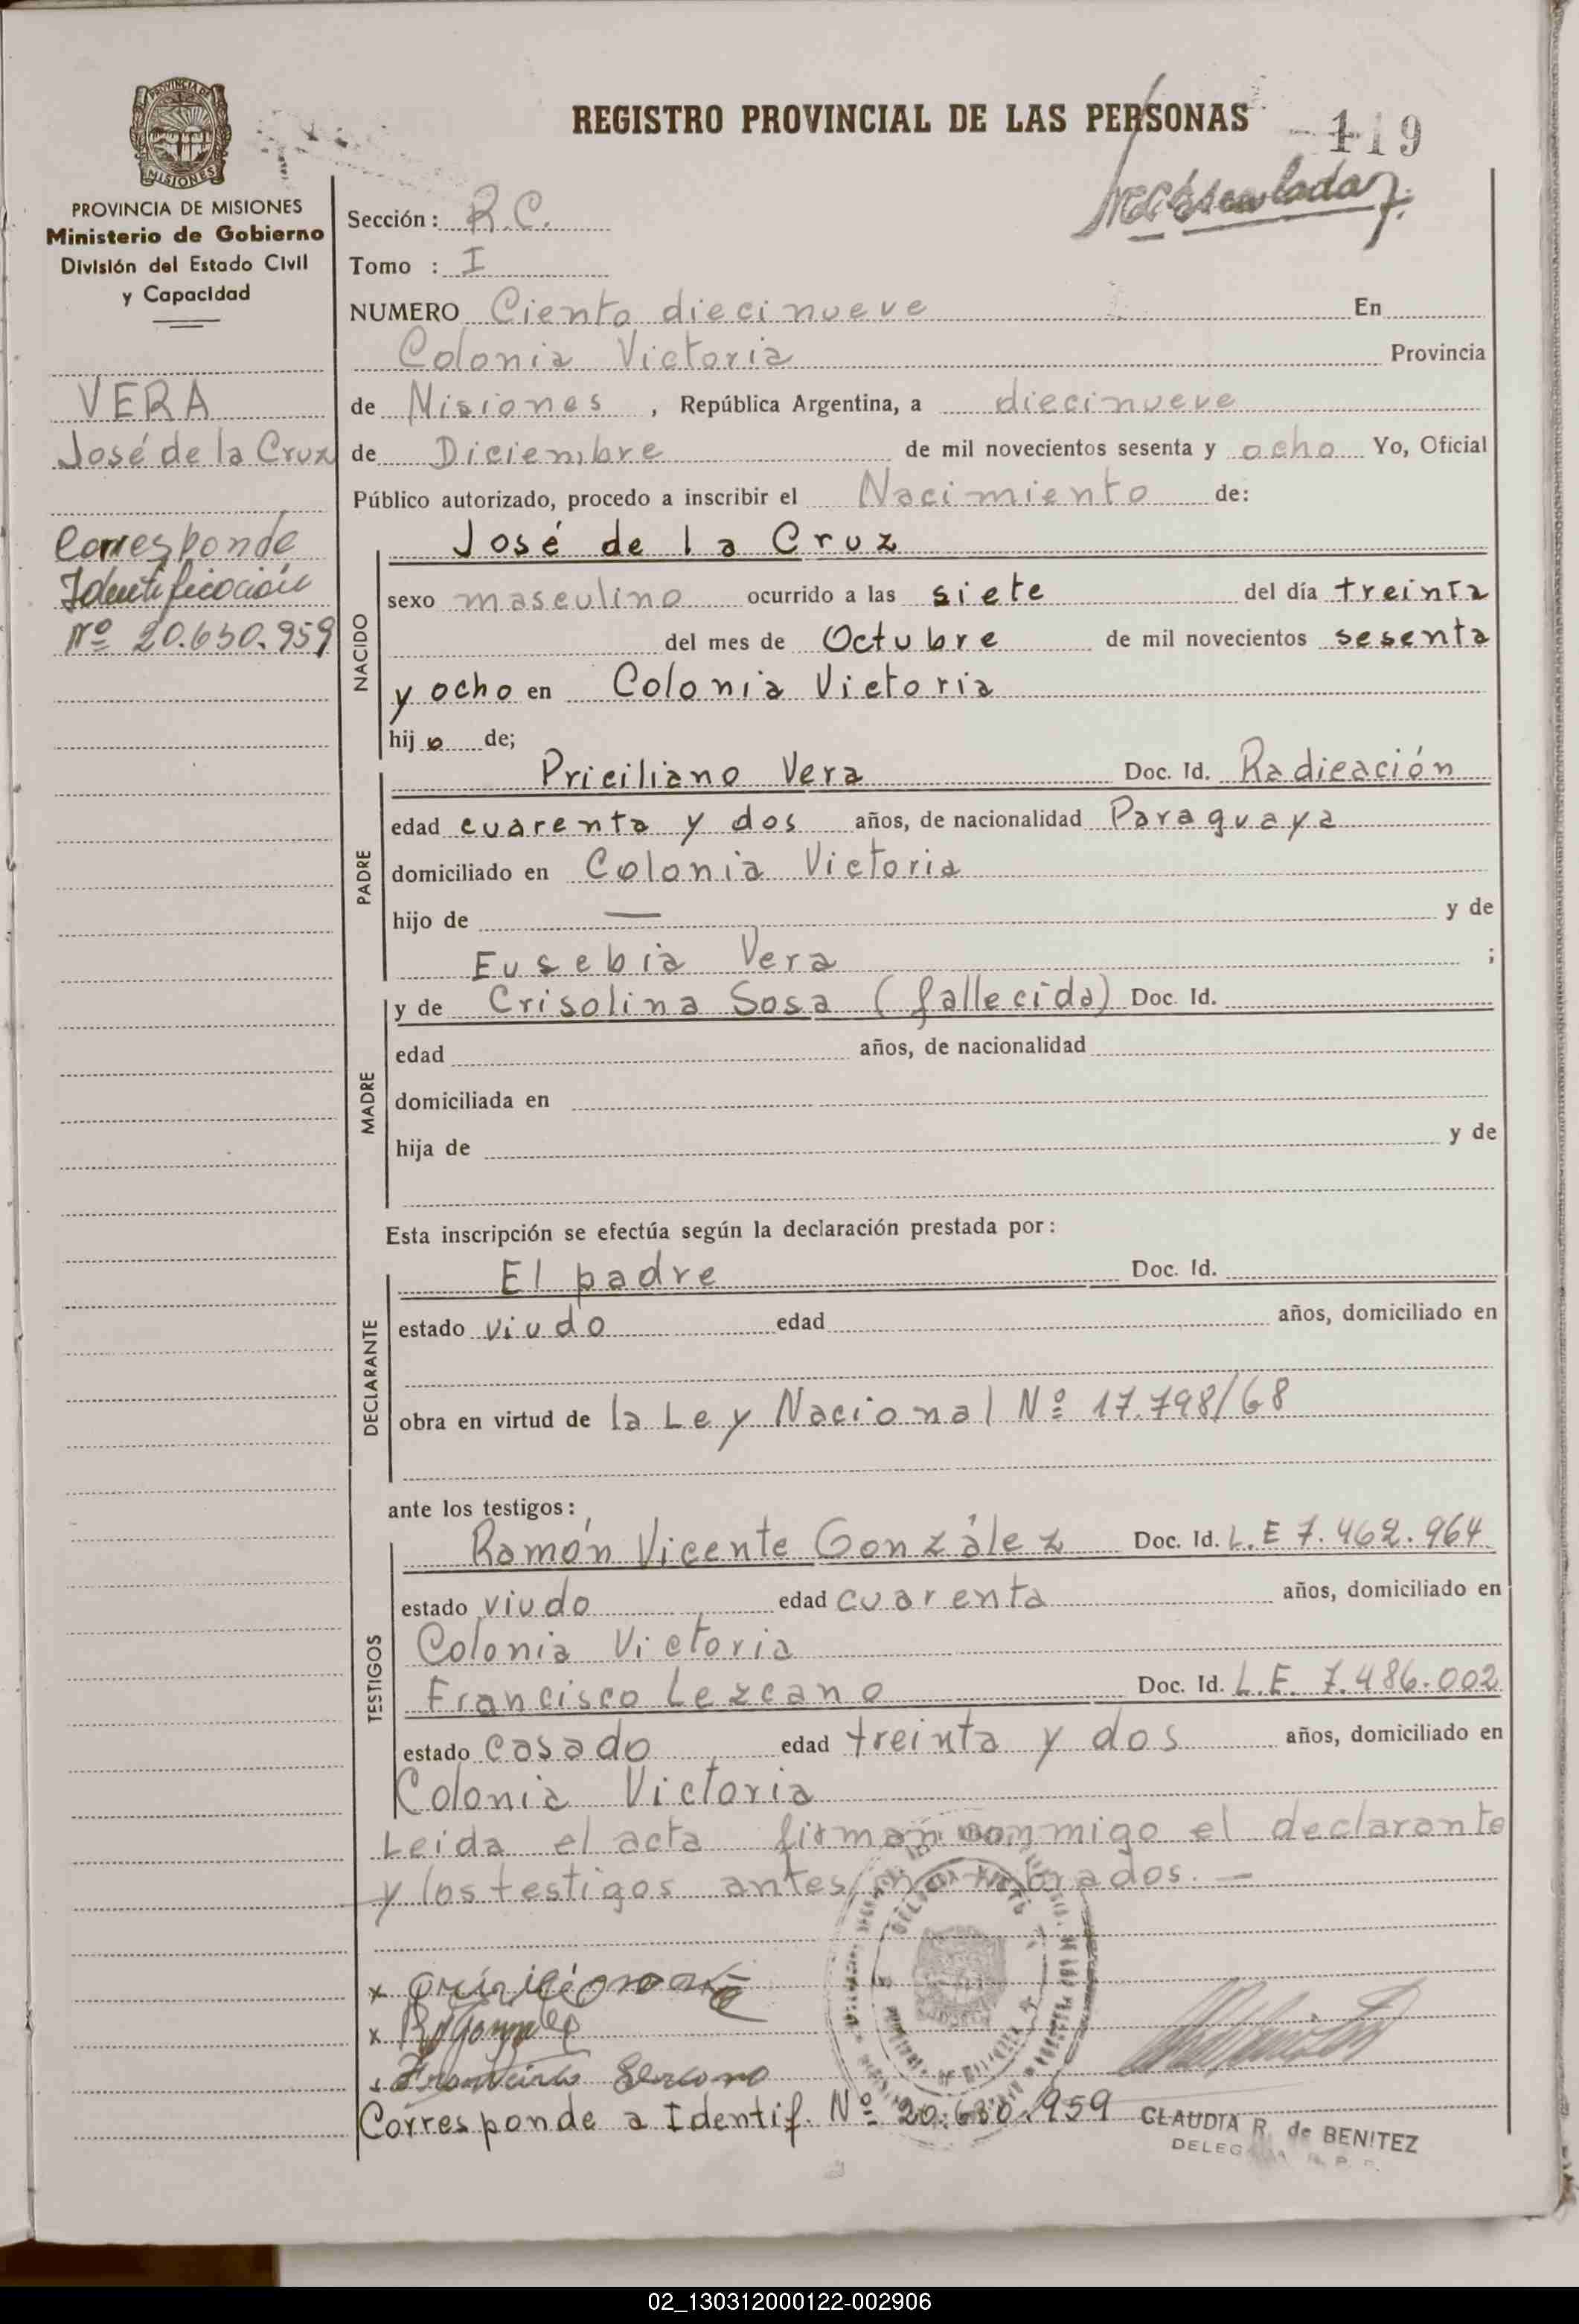 REGISTRO PROVINCIAL DE LAS PERSONAS
119
PROVINCIA DE MISIONES
MISIONES
PROVINCIA DE MISIONES
Ministerio de Gobierno
División del Estado Civil
y Capacidad
VERA
José de la Cruz
Corresponde
Identificación
Nº 20.630.959
Sección: R.C.
Tomo : I
NUMERO Ciento diecinueve En
Colonia Victoria Provincia
de Misiones, República Argentina, a diecinueve
de Diciembre de mil novecientos sesenta y ocho Yo, Oficial
Público autorizado, procedo a inscribir el Nacimiento de:
NACIDO
José de la Cruz
sexo masculino ocurrido a las siete del día treinta
del mes de Octubre de mil novecientos sesenta
y ocho en Colonia Victoria
hijo de;
PADRE
Priciliano Vera Doc. Id. Radicación
edad cuarenta y dos años, de nacionalidad Paraguaya
domiciliado en Colonia Victoria
hijo de — y de
Eusebia Vera ;
MADRE
y de Crisolina Sosa (fallecida) Doc. Id.
edad años, de nacionalidad
domiciliada en
hija de y de
Esta inscripción se efectúa según la declaración prestada por:
DECLARANTE
El padre Doc. Id.
estado viudo edad años, domiciliado en
obra en virtud de la Ley Nacional Nº 17.798/68
ante los testigos:
TESTIGOS
Ramón Vicente González Doc. Id. L.E 7.462.964
estado viudo edad cuarenta años, domiciliado en
Colonia Victoria
Francisco Lezcano Doc. Id. L.E. 7.486.002
estado casado edad treinta y dos años, domiciliado en
Colonia Victoria
Leida el acta firman conmigo el declarante
y los testigos antes nombrados. —
x
x
Corresponde a Identif. Nº 20.630.959
CLAUDIA R. de BENITEZ
02_130312000122-002906